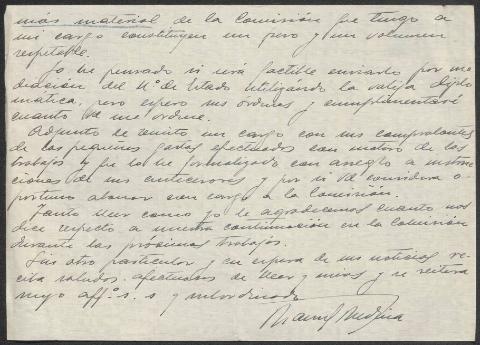 más material de la Comisión que tengo a
mi cargo constituyen un peso y un volumen
respetable.
Yo he pensado si será factible enviarlo por me
diación del Mº de Estado utilizando la valija diplo
mática, pero espero sus órdenes y cumplimentaré
cuanto Vd me ordene.
Adjunto le remito un cargo con sus comprobantes
de los pequeños gastos efectuados con motivo de los
trabajos y que lo he formalizado con arreglo a instruc
ciones de mis antecesores y por si Vd considera o-
portuno abonar con cargo a la Comisión.
Tanto como yo le agradecemos cuanto nos
dice respecto a nuestra continuación en la Comisión
durante los próximos trabajos.
Sin otro particular y en espera de sus noticias re
ciba saludos afectuosos de y míos y se reitera
suyo aff.º s. s y subordinado
Manuel Medina